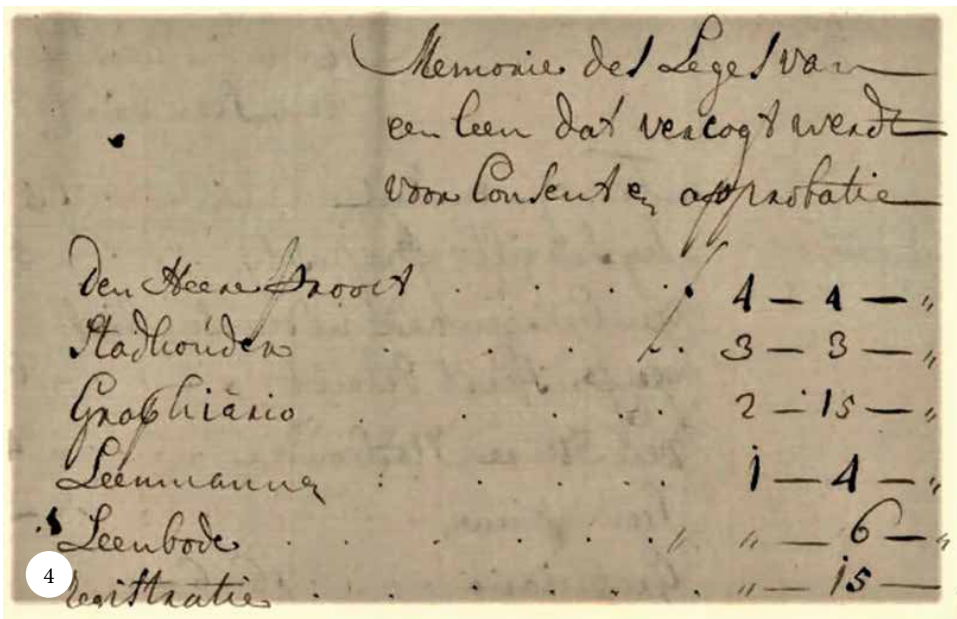 Memorie des Leges van
een leen dat vercogt werdt
voor Consent en approbatie
Den Heere Proost . . . . . 4 – 4 – "
Stadhouder . . . . . 3 – 3 – "
Graphiario . . . . . 2 – 15 – "
Leenmannen . . . . . 1 – 4 – "
Leenbode . . . . . " " – 6 – "
registratie . . . . . " – 15 –
4